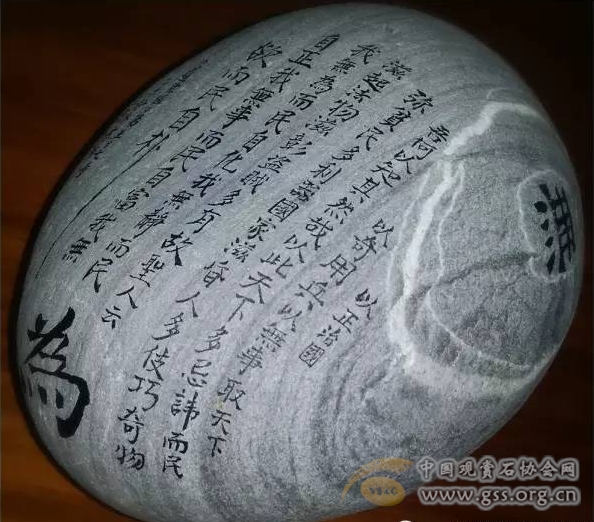 無
為
以正治國
以奇用兵以無事取天下
吾何以知其然哉以此天下多忌諱而民
弥貧民多利器國家滋昏人多伎巧奇物
滋起法物滋彰盜賊多有故聖人云
我無為而民自化我無靜而民
自正我無事而民自富我無
欲而民自朴
中国观赏石协会网
www.gss.org.cn